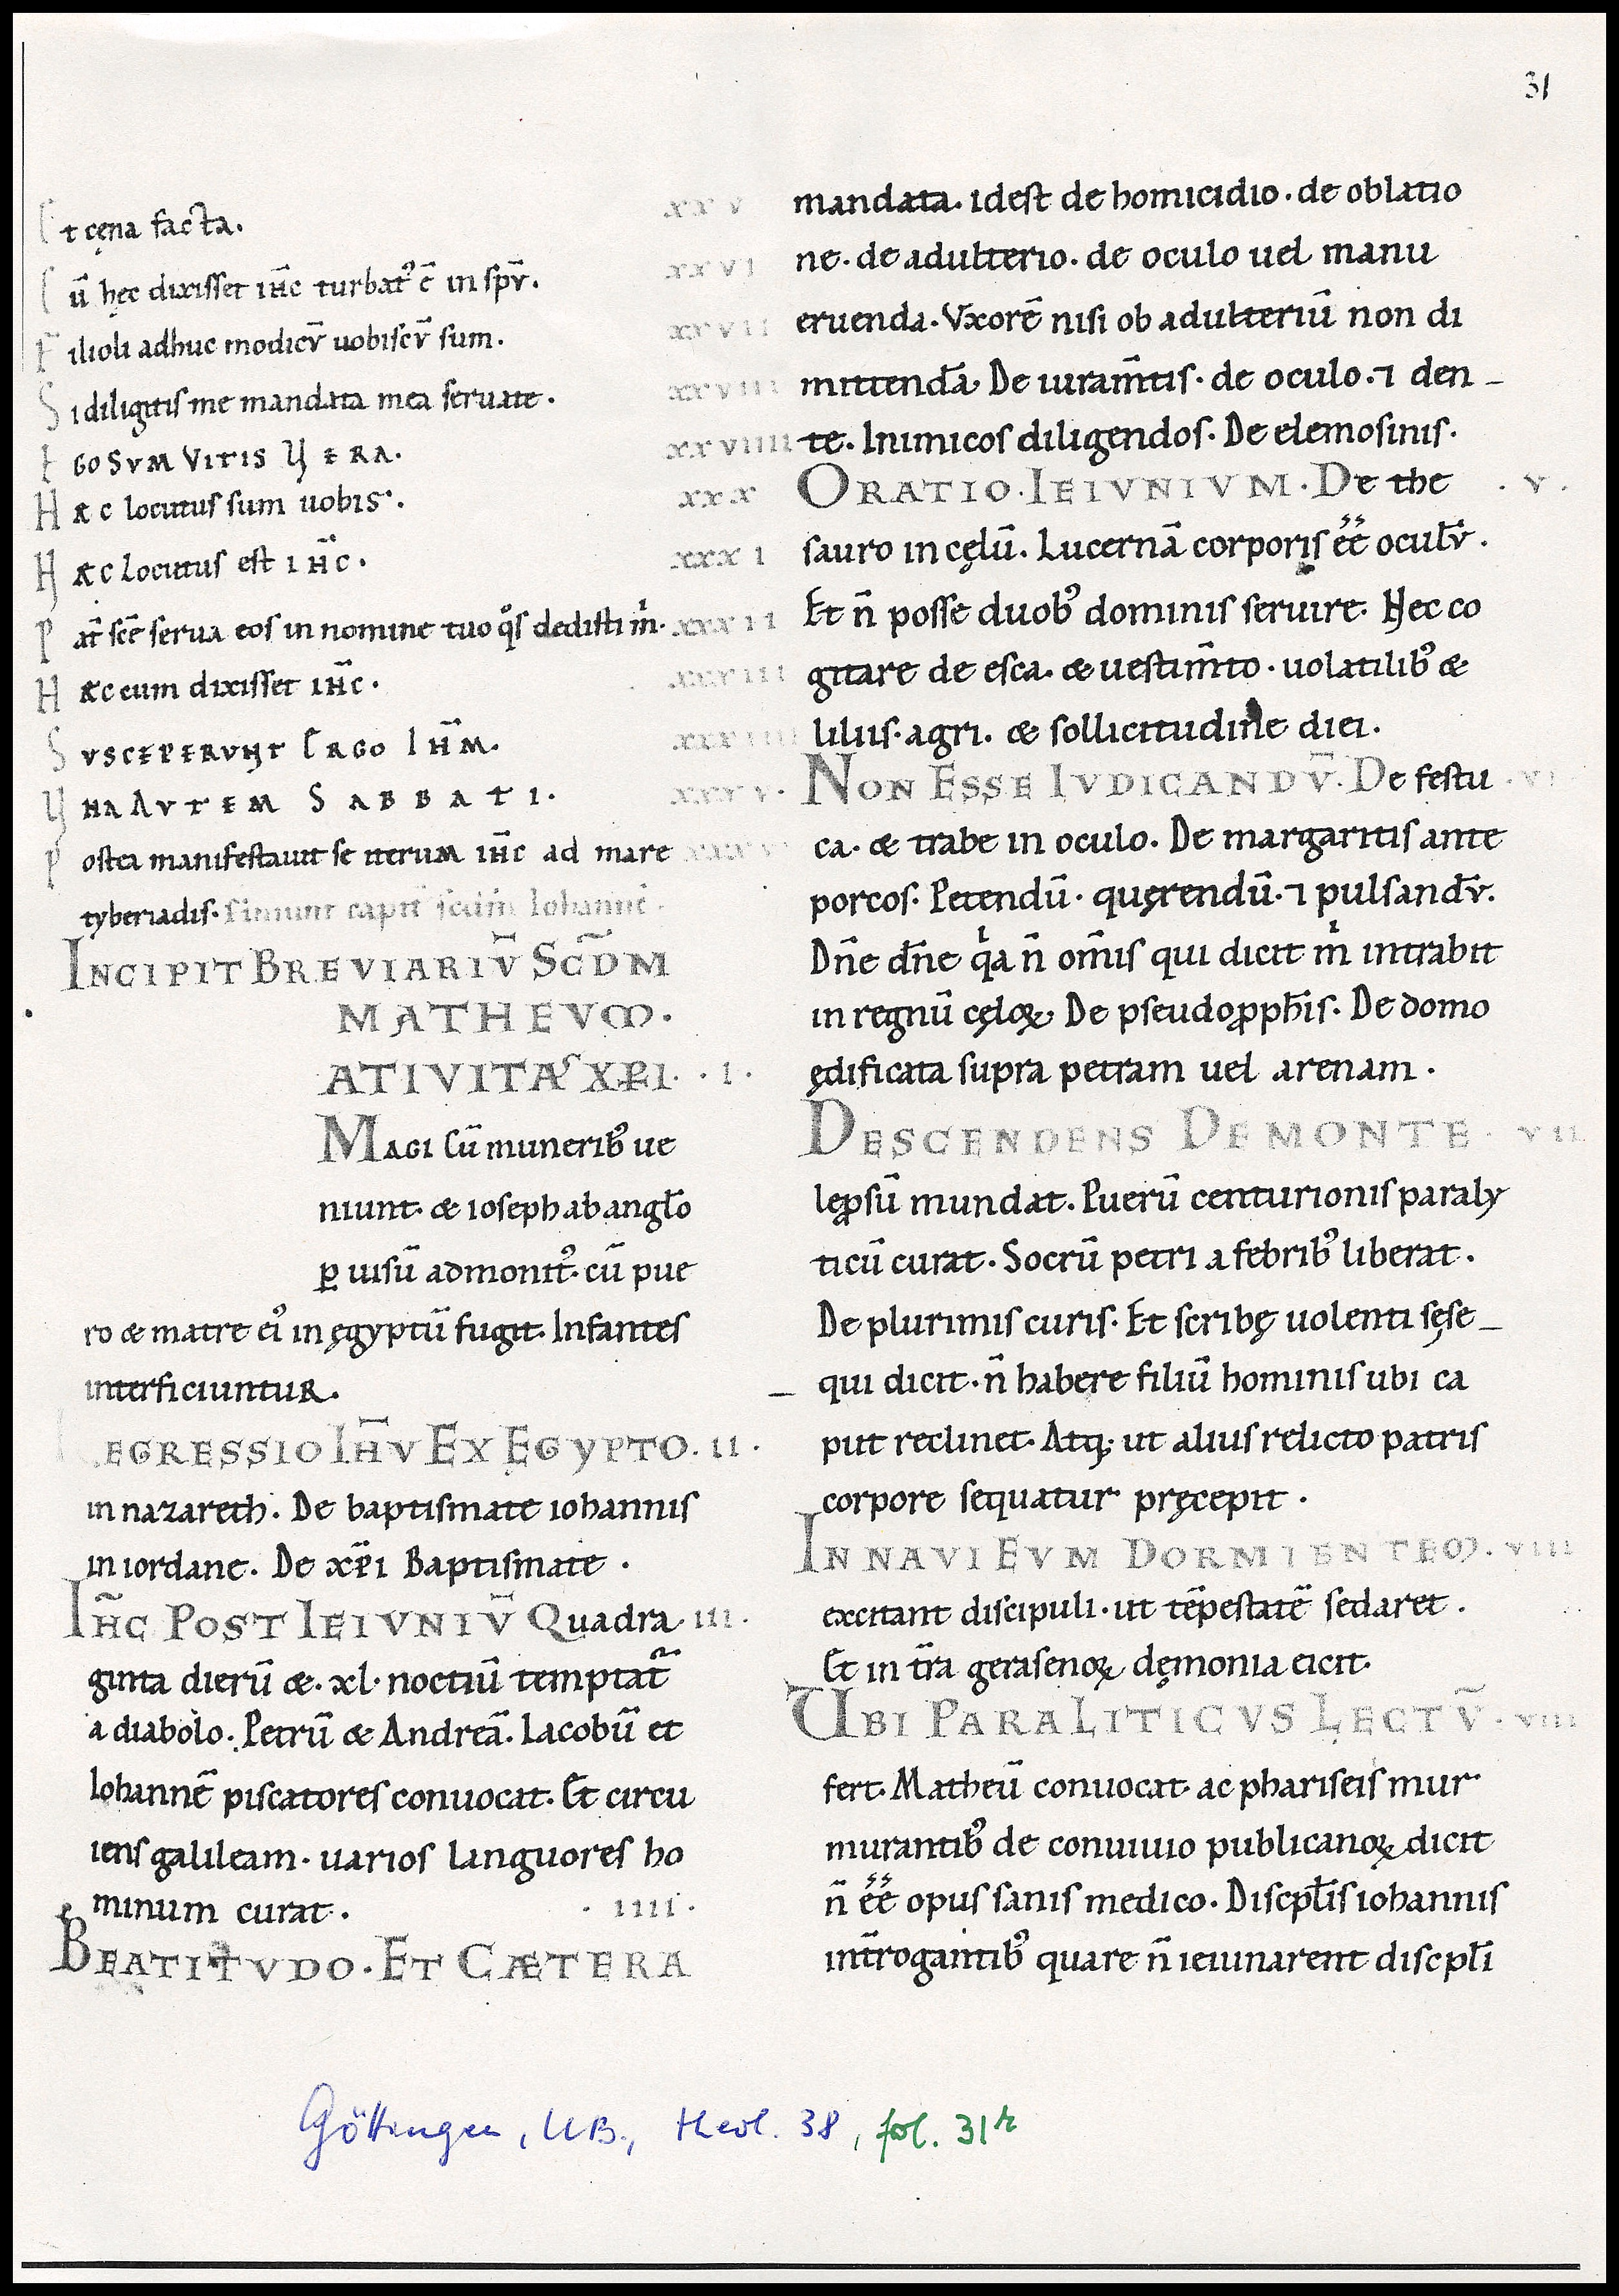 31
Et cęna facta. xxv
Cū hęc dixisset ih̄c turbat᾿ ē in sp̄v. xxvi
Filioli adhuc modicv̄ uobiscv̄ sum. xxvii
Si diligitis me mandata mea seruate. xxviii
EGO SVM VITIS VERA. xxviiii
Hęc locutus sum uobis. xxx
Hęc locutus est ih̄c. xxxi
Pat̄ sc̄e serua eos in nomine tuo qͦs dedisti m̊. xxxii
Hęc cum dixisset ih̄c. xxxiii
SVSCEPERVNT ERGO IH̄M. xxxiiii
VNA AVTEM SABBATI. xxxv.
Postea manifestauit se iterum ih̄c ad mare
tyberiadis.
INCIPIT BREVIARIV̄ SC̄DM
MATHEVM.
ATIVITAS XP̄I. .I.
MAGI Cū munerib᾿ ue
niunt. & ioseph ab angl̄o
ꝑ uisū admonit᾿. cū pue
ro & matre ei᾿ in ęgyptū fugit. Infantes
interficiuntur.
REGRESSIO IH̄V EX EGYPTO. II.
in nazareth. De baptismate iohannis
in iordane. De xp̄i Baptismate .
IH̄C POST IEIVNIV̄ Quadra III.
ginta dierū &. xl. noctiū temptat̄
a diabolo. Petrū & Andreā. Iacobū et
Iohannē piscatores conuocat. Et circu
iens galileam. uarios languores ho
minum curat. .IIII.
BEATITVDO. ET CÆTERA
mandata. idest de homicidio. de oblatio
ne. de adulterio. de oculo uel manu
eruenda. Vxorē nisi ob adulteriū non di
mittendā. De iuram̄tis. de oculo. ⁊ den_
te. Inimicos diligendos. De elemosinis.
ORATIO. IEIVNIVM. De the .V.
sauro in cęlū. Lucernā corporis éé ocul̄v.
Et n̄ posse duob᾿ dominis seruire. Hec co
gitare de esca. & uestim̄to. uolatilib᾿ &
liliis. agri. & sollicitudine diei.
NON ESSE IVDICANDV̄. De festu .VI
ca. & trabe in oculo. De margaritis ante
porcos. Petendū. quęrendū. ⁊ pulsandv̄.
Dn̄e dn̄e qͥa n̄ om̄is qui dicit mͥ intrabit
in regnū cęloꝝ. De pseudoꝓph̄is. De domo
ędificata supra petram uel arenam.
DESCENDENS DE MONTE. VII
leꝓsū mundat. Puerū centurionis paraly
ticū curat. Socrū petri a febrib᾿ liberat.
De plurimis curis. Et scribę uolenti sęse_
qui dicit. n̄ habere filiū hominis ubi ca
put reclinet. Atq; ut alius relicto patris
corpore sequatur pręcepit .
IN NAVI EVM DORMIENTEM. VIII
excitant discipuli. ut tēpestatē sedaret.
Et in tr̄a gerasenoꝝ dęmonia eicit.
VBI PARALITICVS LECTV̄. VIIII
fert. Matheū conuocat ac phariseis mur
murantib᾿ de conuiuio publicanoꝝ dicit
n̄ éé opus sanis medico. Discpl̄is iohannis
int̄rogantib᾿ quare n̄ ieiunarent discpl̄i
Göttingen, UB., theol. 38, fol. 31r